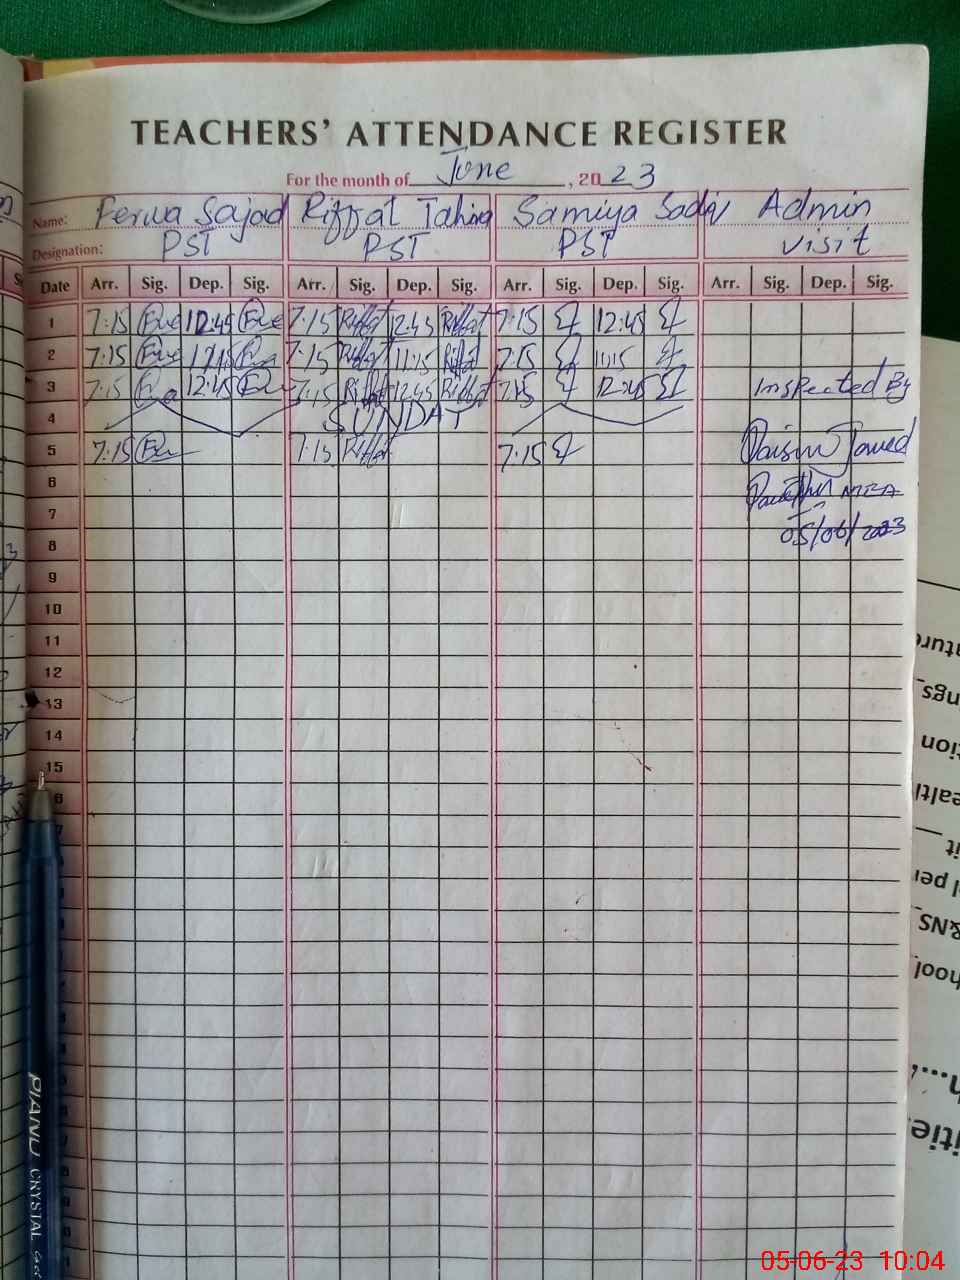 TEACHERS' ATTENDANCE REGISTER
For the month of June, 2023
Name: Perwa Sajad Riffat Tahira Samiya Sadiq Admin
Designation: PST PST PST visit
Date Arr. Sig. Dep. Sig. Arr. Sig. Dep. Sig. Arr. Sig. Dep. Sig. Arr. Sig. Dep. Sig.
1 7:15 12:45 7:15 Riffat 12:45 Riffat 7:15 12:45
2 7:15 11:15 7:15 Riffat 11:15 Riffat 7:15 11:15
3 7:15 12:45 7:15 Riffat 12:45 Riffat 7:15 12:45 Inspected By
4 SUNDAY
5 7:15 7:15 Riffat 7:15 Javed
6 MEA
7 05/06/2023
8
9
10
11
12
13
14
15
PIANO CRYSTAL
05-06-23 10:04